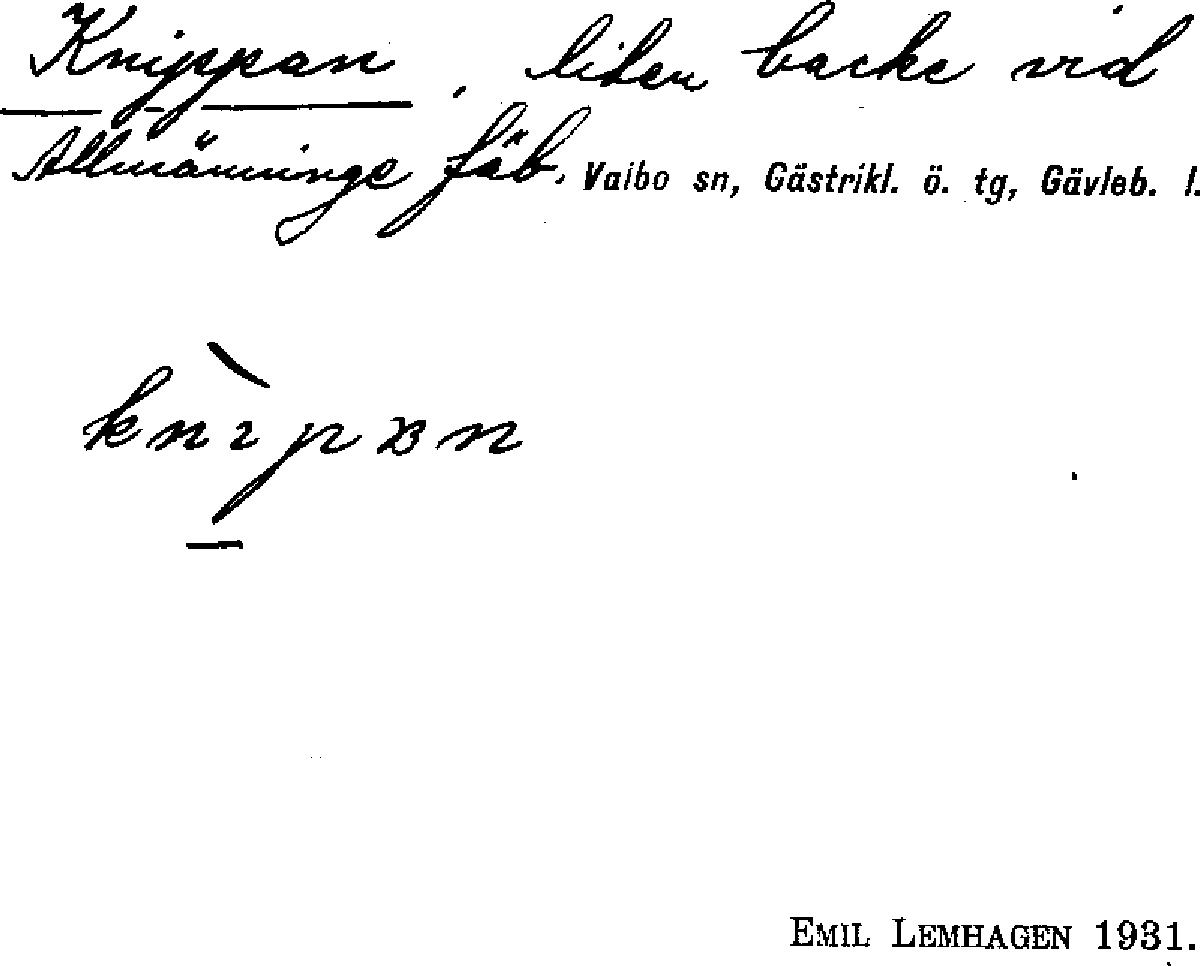 Knippan, liten backe vid
Allmänninge fäb. Valbo sn, Gästrikl. ö. tg, Gävleb. l.
knɪpʙn
EMIL LEMHAGEN 1931.